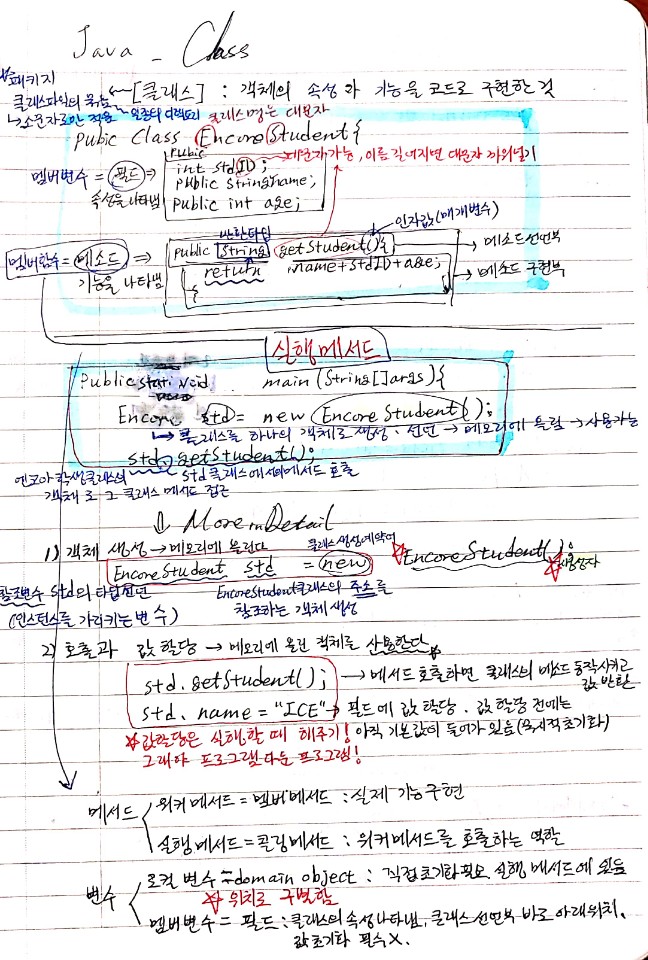 Java - Class
패키지
클래스파일의 묶음
↳소문자로만 적용 일종의 디렉토리
[클래스] : 객체의 속성과 기능을 코드로 구현한 것
클래스명는 대문자
Pubic Class EncoreStudent{
멤버변수 = 필드 ⇒
속성을 나타냄
Pubic
int stdID;
public String name;
public int age;
대문자가능, 이름 길어지면 대문자 끼워넣기
반환타입
인자값(매개변수)
멤버함수 = 메소드 ⇒
기능을 나타냄
public String getStudent(){
return name+stdID+age;
}
메소드선언부
메소드 구현부
실행메서드
Public static void main (String[]args){
Encore std = new EncoreStudent();
↳ 클래스를 하나의 객체로 생성·선언 → 메모리에 올림 → 사용가능
std.getStudent();
엔코아학생클래스의
객체로 그 클래스 메서드 접근
std클래스에서의메서드 호출
⇓ More in Detail
1) 객체 생성 → 메모리에 올린다
클래스 생성예약어
EncoreStudent std = new
☆EncoreStudent();
☆생성자
참조변수 std의 타입선언
(인스턴스를 가리키는 변수)
EncoreStudent클래스의 주소를
참조하는 객체 생성
2) 호출과 값 할당 → 메모리에 올린 객체를 사용한다
std.getStudent(); → 메서드 호출하면 클래스의 메소드 동작시키고
값 반환
std.name = "ICE" → 필드에 값 할당. 값 할당 전에는
아직 기본값이 들어가 있음(묵시적초기화)
☆값할당은 실행할 때 해주기!
그래야 프로그램다운 프로그램!
메서드
워커메서드 = 멤버메서드 : 실제 기능구현
실행메서드=콜링메서드 : 워커메서드를 호출하는 역할
변수
로컬 변수 = domain object : 직접초기화필요, 실행 메서드에 있음
☆ 위치로 구별함
멤버변수 = 필드 : 클래스의 속성나타냄, 클래스 선언부 바로 아래 위치.
값 초기화 필수X.